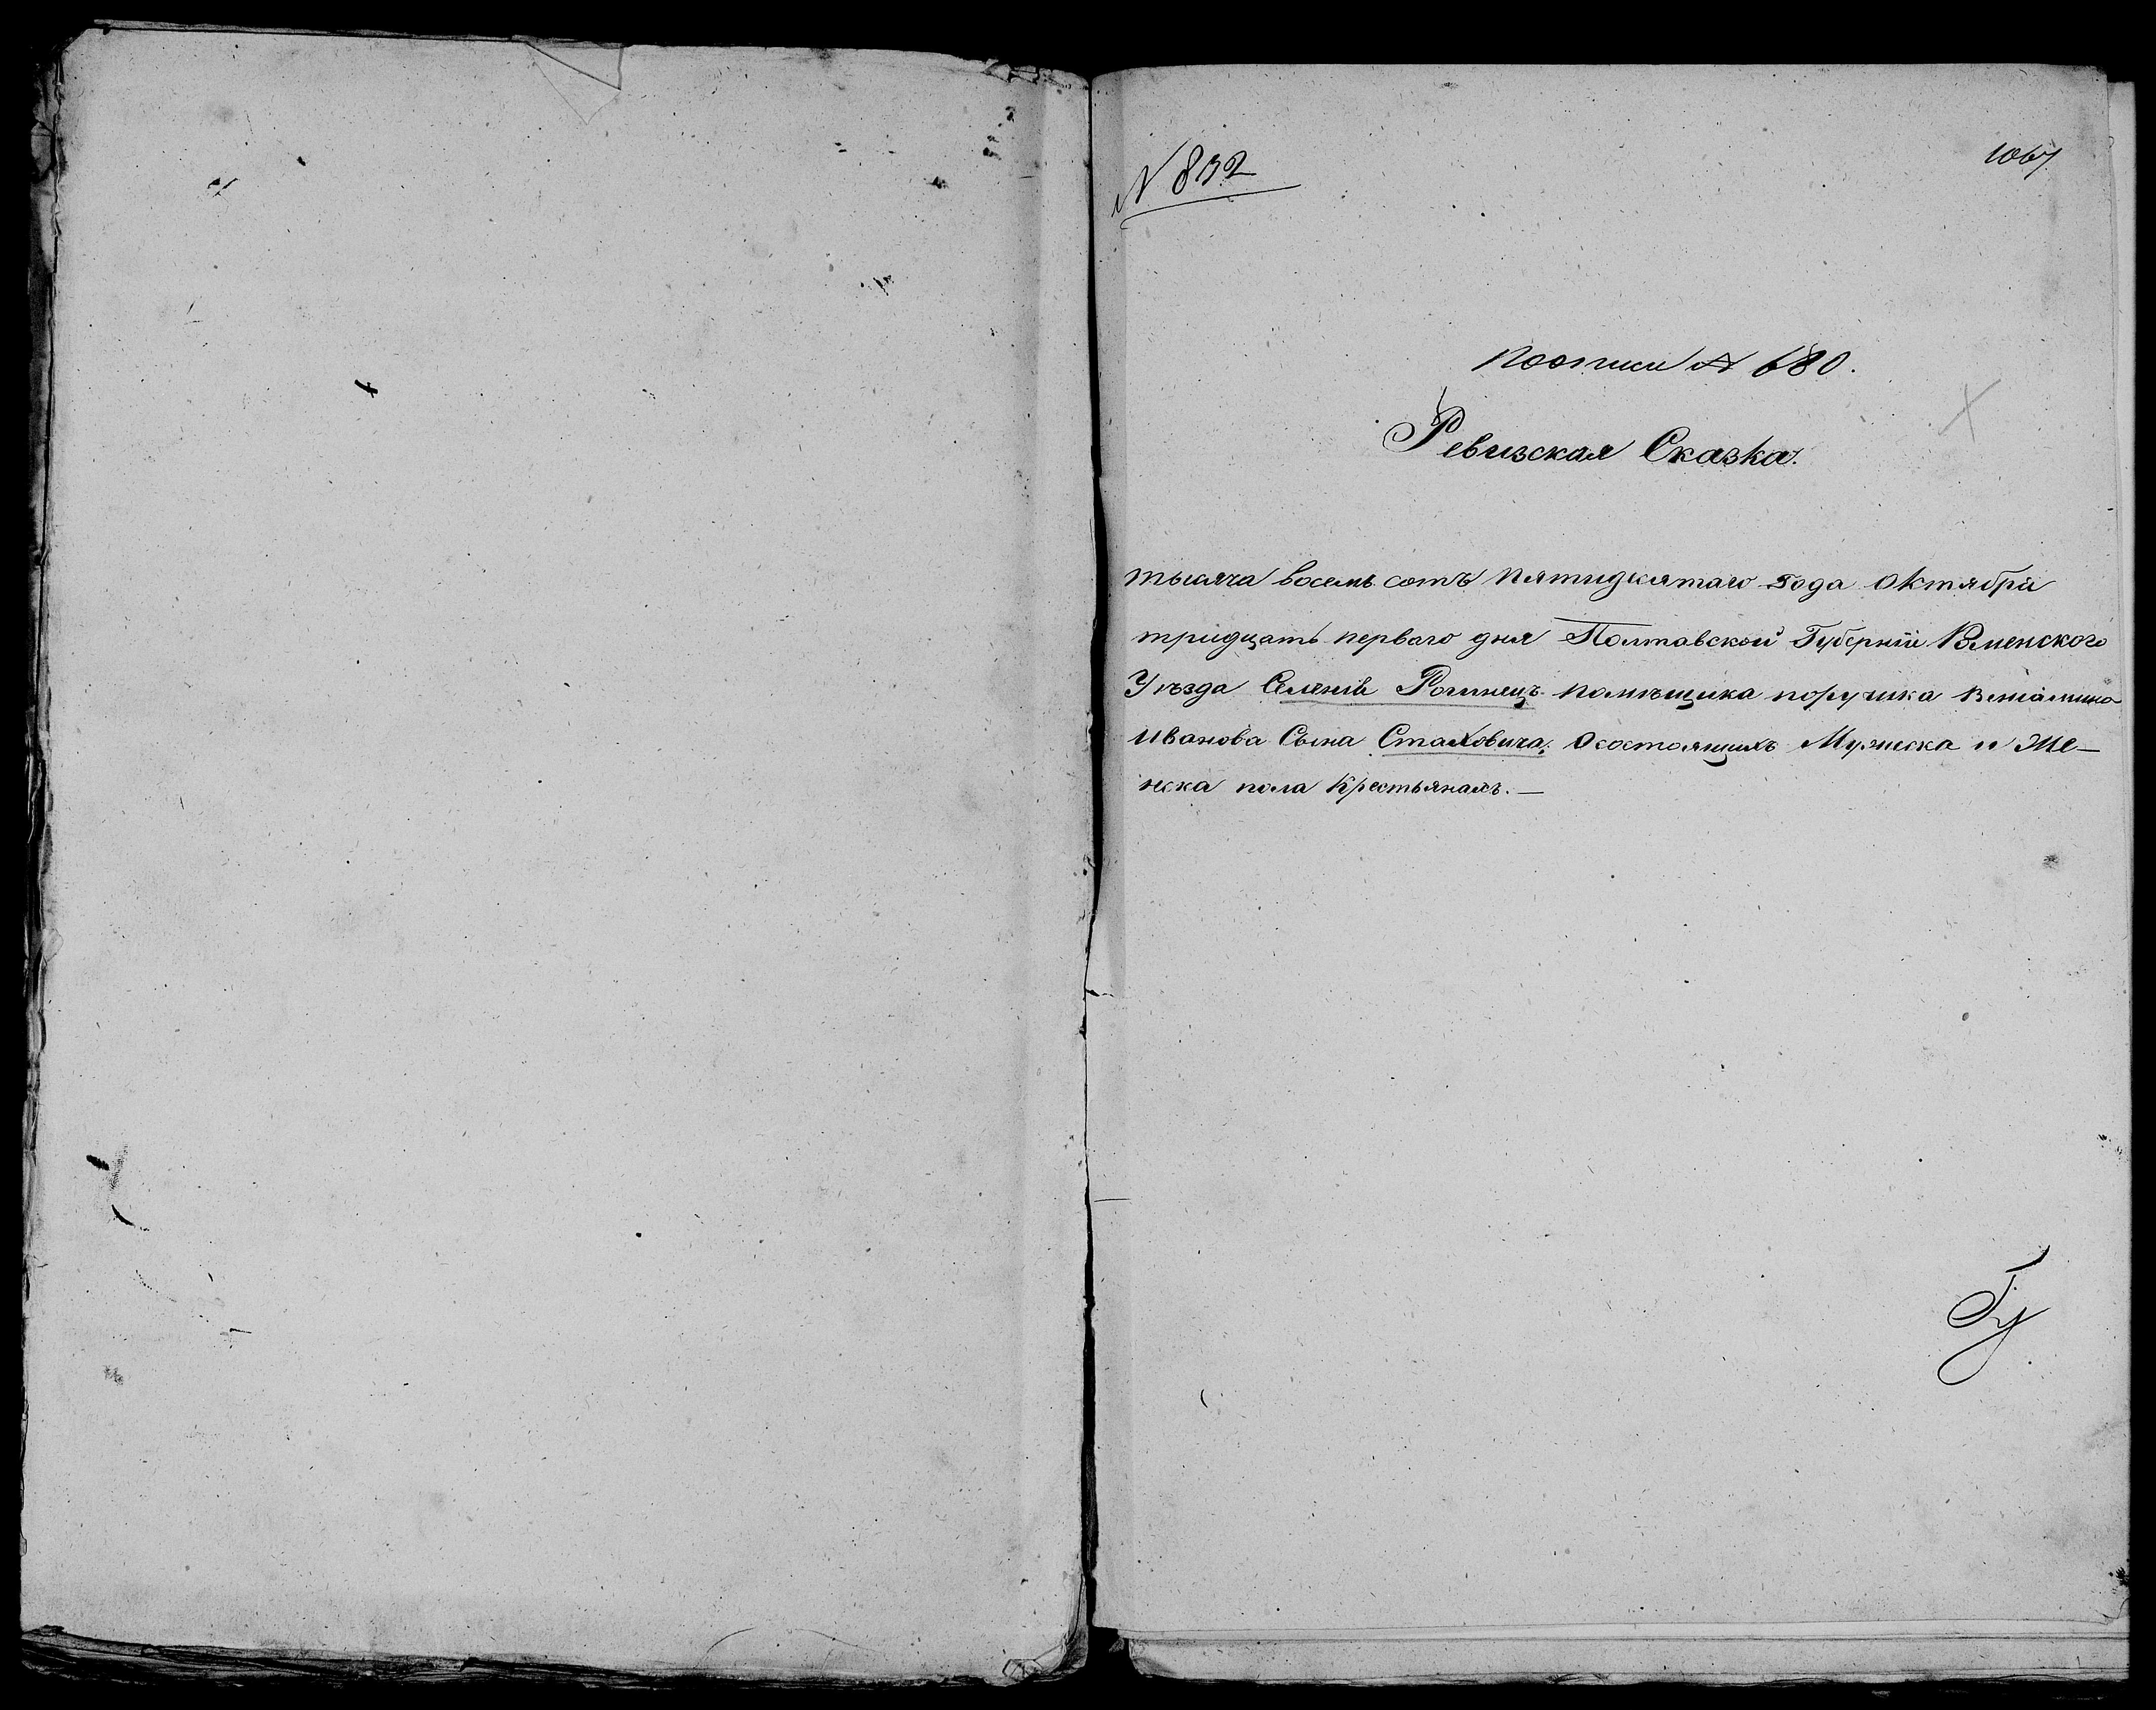 N 832
1067
По описи № 680.
Ревизская Сказка.
тысяча восемь сотъ пятидесятаго Года Октября
тридцать перваго дня Полтавской Губерніи Роменского
Уѣзда Селенія Рогинецъ помѣщика поручика Веніамина
Иванова Сына Стаховича. О состоящихъ Мужеска и Же-
неска пола Крестьянахъ. —